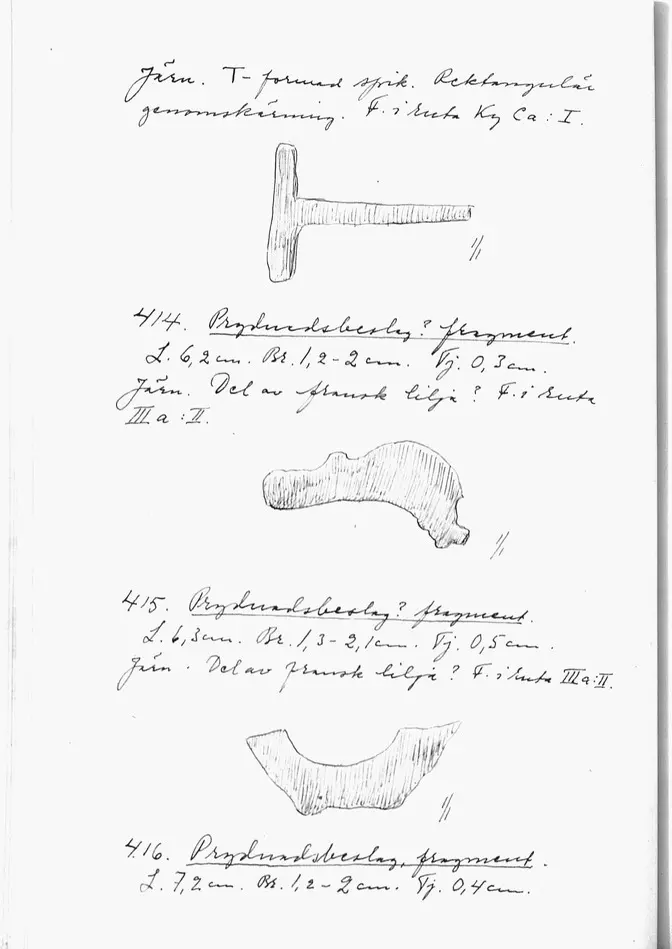 Järn. T-formad spik. Rektangulär
genomskärning. F. i ruta Ky Ca : I.
1/1
414. Prydnadsbeslag? fragment.
L. 6,2 cm. Br. 1,2-2 cm. Tj. 0,3 cm.
Järn. Del av fransk lilja? F. i ruta
III a : II.
1/1
415. Prydnadsbeslag? fragment.
L. 6,3 cm. Br. 1,3-2,1 cm. Tj. 0,5 cm.
Järn. Del av fransk lilja? F. i ruta III a : II.
1/1
416. Prydnadsbeslag, fragment.
L. 7,2 cm. Br. 1,2-2 cm. Tj. 0,4 cm.